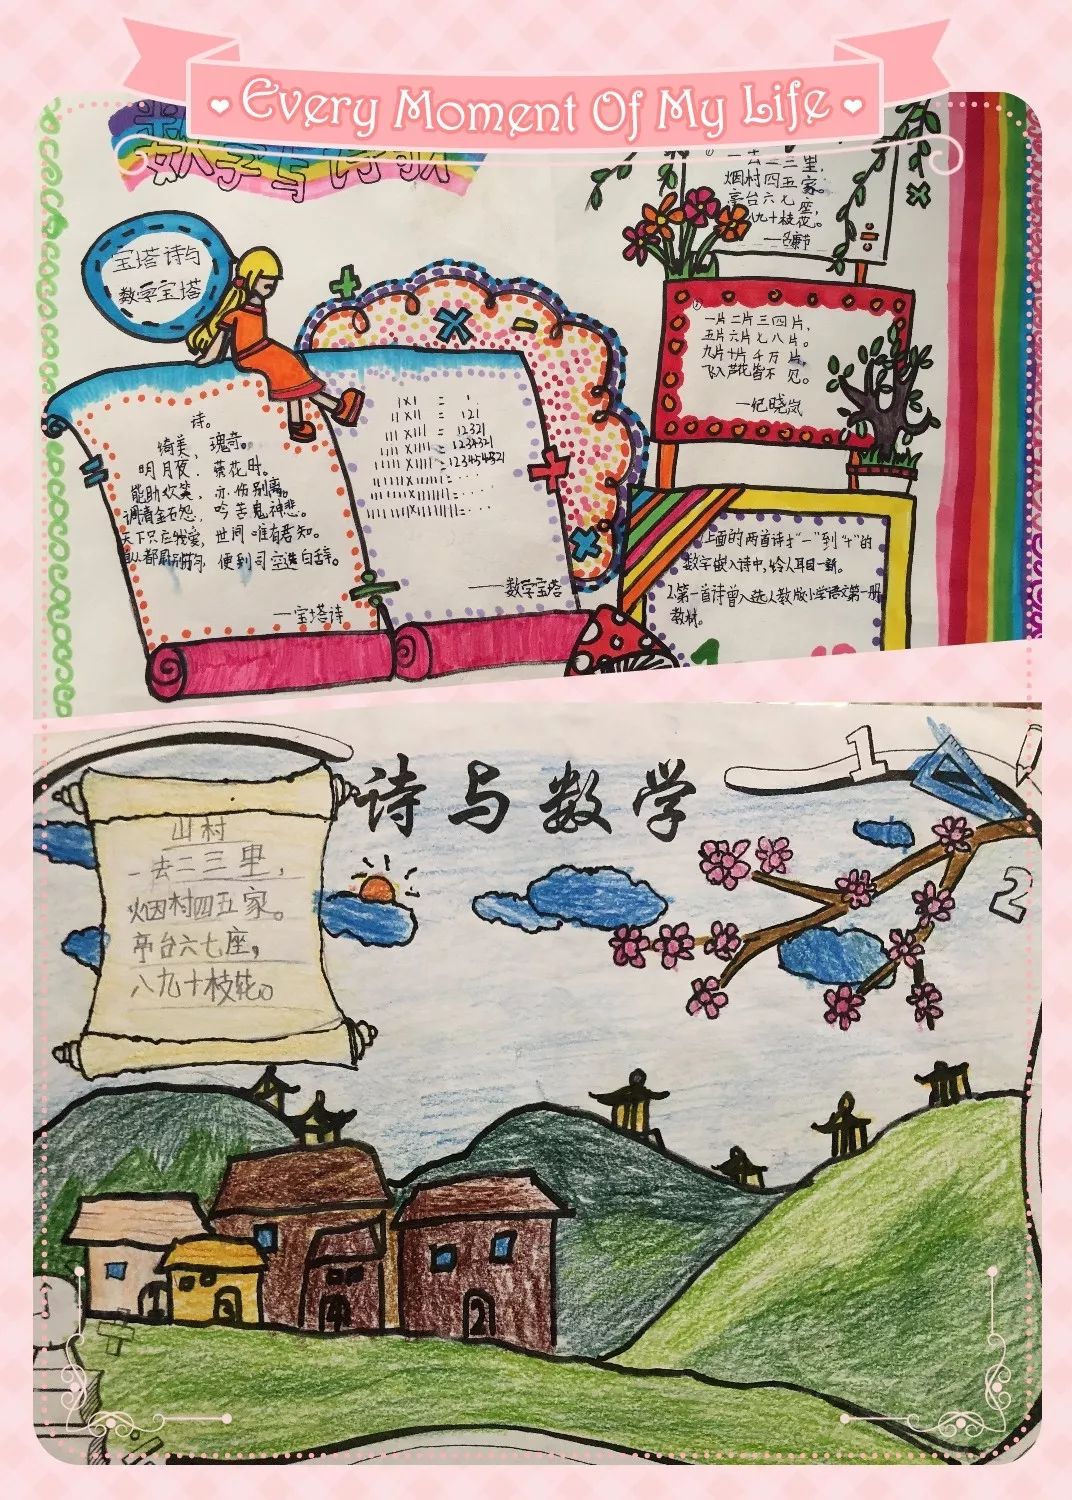 Every Moment Of My Life
数学与诗歌
宝塔诗与
数学宝塔
诗。
绮美，瑰奇。
明月夜，落花时。
能助欢笑，亦伤别离。
调清金石怨，吟苦鬼神悲。
天下只应我爱，世间唯有君知。
便到司空送白辞。
—宝塔诗
1×1 = 1.
11×11 = 121
111×111 = 12321
1111×1111 = 1234321
—数学宝塔
一去二三里，
烟村四五家。
亭台六七座，
八九十枝花。
②
一片二片三四片，
五片六片七八片。
九片十片千万片，
飞入芦花皆不见。
—纪晓岚
上面的两首诗才“一”到“十”的
数字嵌入诗中，令人耳目一新。
2.第一首诗曾入选人教版小学语文第一册
教材。
诗与数学
1
2
山村
一去二三里，
烟村四五家。
亭台六七座，
八九十枝花。
3
4
2